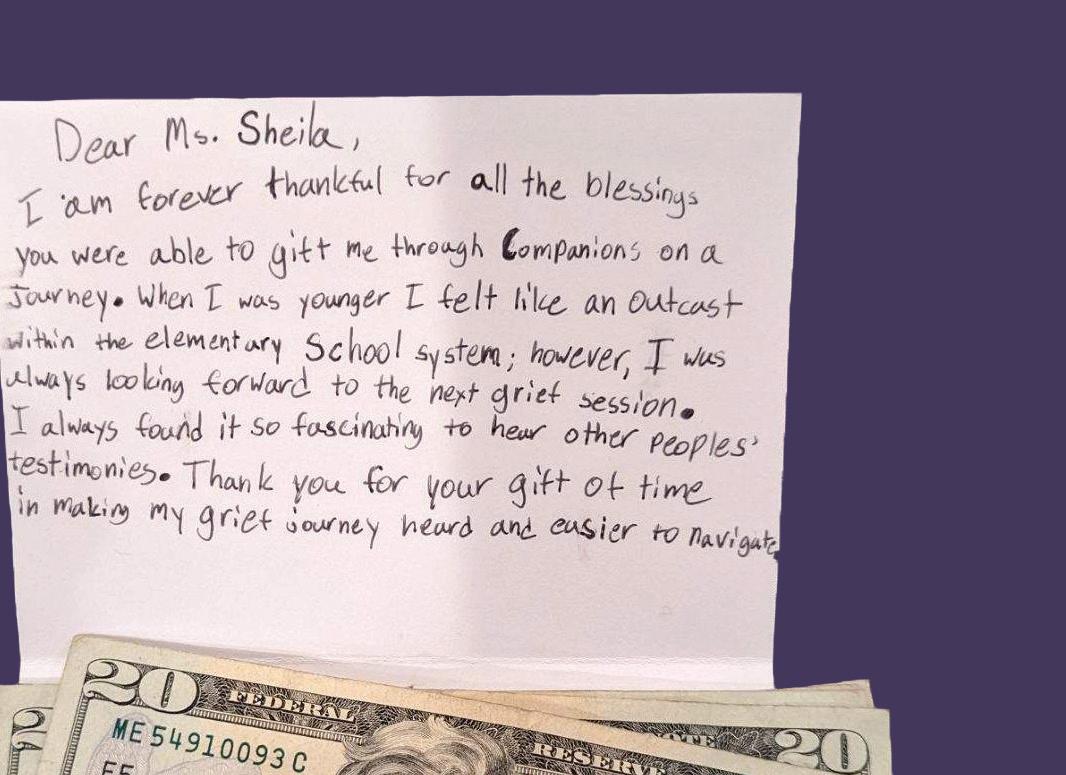 Dear Ms. Sheila,
I am forever thankful for all the blessings
you were able to gift me through Companions on a
Journey. When I was younger I felt like an outcast
within the elementary School system; however, I was
always looking forward to the next grief session.
I always found it so fascinating to hear other peoples'
testimonies. Thank you for your gift of time
in making my grief journey heard and easier to navigate
20 FEDERAL RESERVE
20
ME54910093C